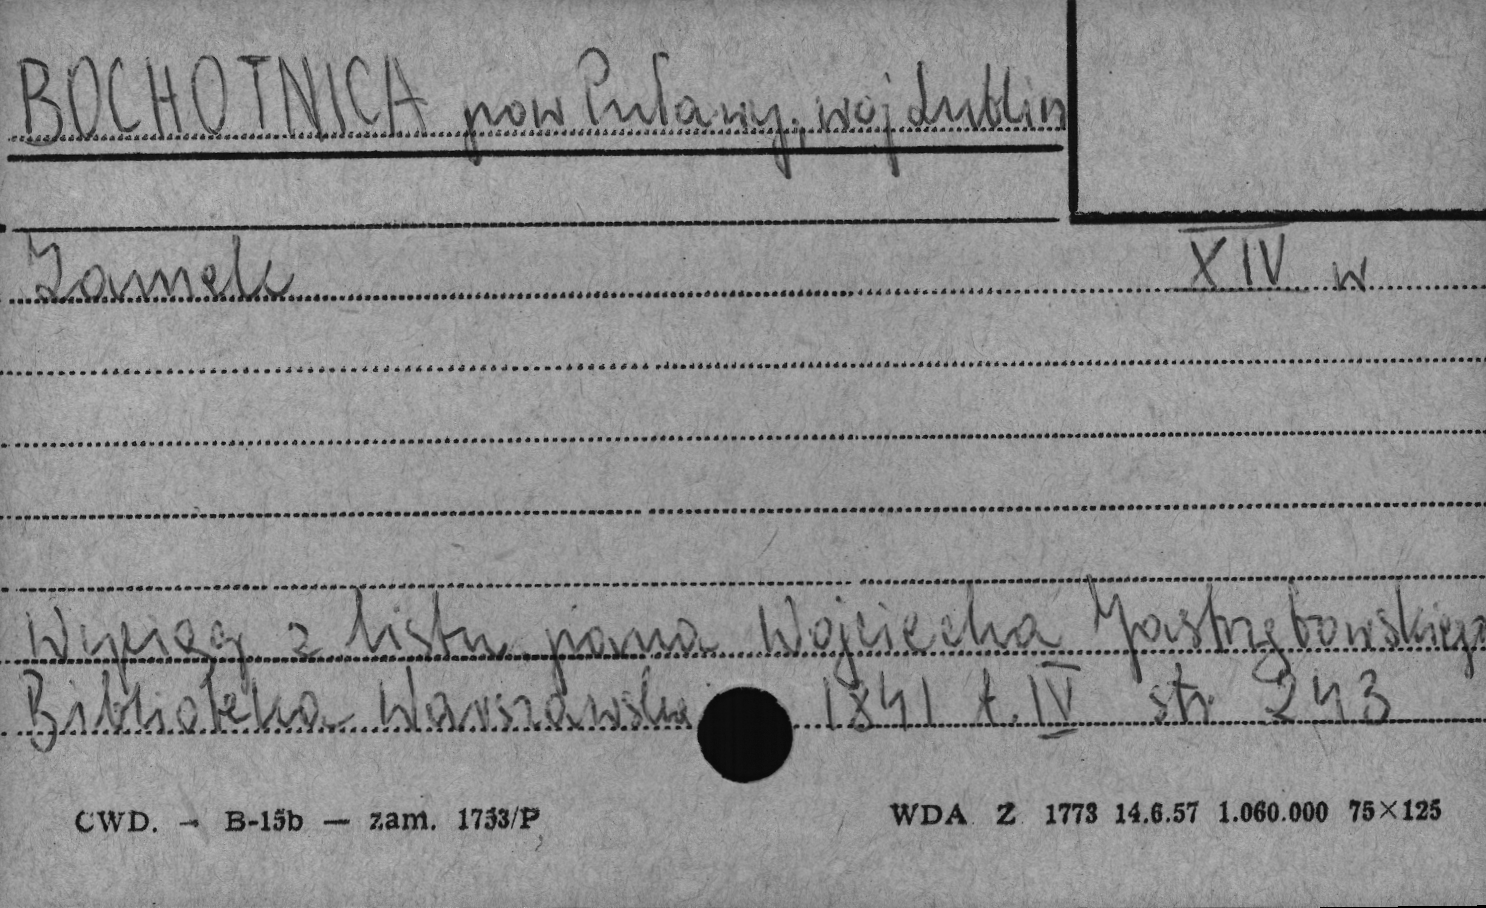 BOCHOTNICA pow Puławy, woj Lublin
Zamek XIV w
Wyciąg z listu pana Wojciecha Jastrzębowskiego
Biblioteka Warszawska 1841 t. IV str 243
CWD. — B-15b — zam. 1753/P
WDA Z 1773 14.6.57 1.060.000 75×125